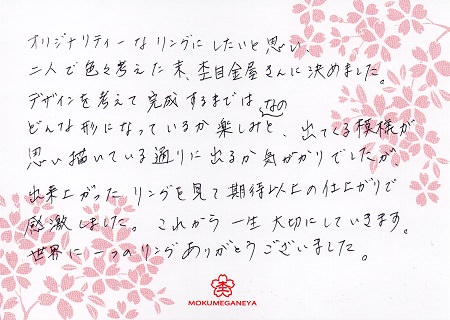 オリジナリティーなリングにしたいと思い、
二人で色々考えた末、杢目金屋さんに決めました。
デザインを考えて完成するまでは
なの
どんな形になっているか楽しみと、出てくる模様が
思い描いている通りに出るか気がかりでしたが、
出来上がったリングを見て期待以上の仕上がりで
感激しました。これから一生大切にしていきます。
世界に一つのリングありがとうございました。
杢
MOKUMEGANEYA